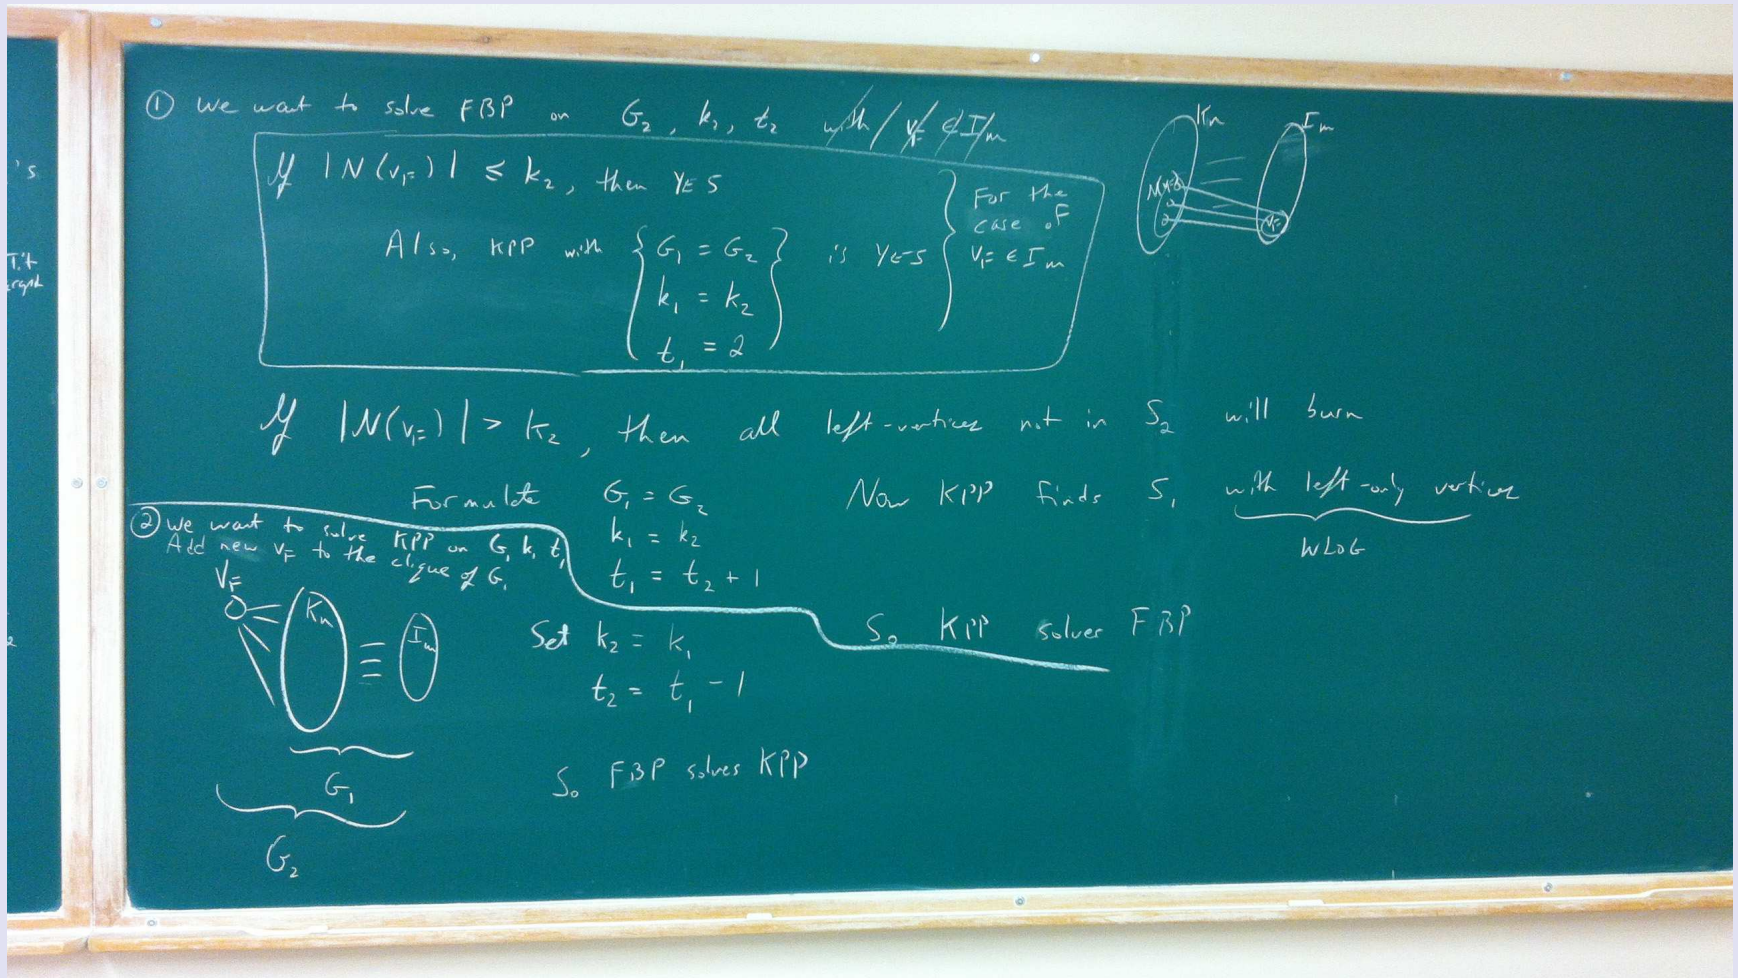 ① We want to solve FBP on G₂, k₂, t₂ with v_F ∉ I_m
If |N(v_F)| ≤ k₂, then YES
Also, KPP with { G₁ = G₂ } is YES
k₁ = k₂
t₁ = 2
For the
case of
v_F ∈ I_m
K_n
I_m
N(v_F)
v_F
If |N(v_F)| > k₂, then all left-vertices not in S₂ will burn
Formulate G₁ = G₂
k₁ = k₂
t₁ = t₂ + 1
Now KPP finds S₁ with left-only vertices
WLOG
So KPP solves FBP
② We want to solve KPP on G₁ k₁ t₁
Add new v_F to the clique of G₁
V_F
K_n
I_m
G₁
G₂
Set k₂ = k₁
t₂ = t₁ - 1
So FBP solves KPP
's